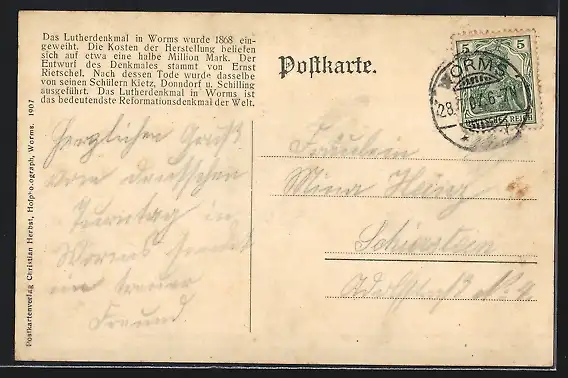 Das Lutherdenkmal in Worms wurde 1868 ein-
geweiht. Die Kosten der Herstellung beliefen
sich auf etwa eine halbe Million Mark. Der
Entwurf des Denkmales stammt von Ernst
Rietschel. Nach dessen Tode wurde dasselbe
von seinen Schülern Kietz, Donndorf u. Schilling
ausgeführt. Das Lutherdenkmal in Worms ist
das bedeutendste Reformationsdenkmal der Welt.
Herzlichen Gruß
vom deutschen
Turntag in
Worms sendet
ein treuer
Freund.
Postkartenverlag Christian Herbst, Hofphotograph, Worms. 1907
Postkarte.
5 5
WORMS
REICH
Fräulein
Mina Heinz
Schierstein
Adolfstraß No. 4